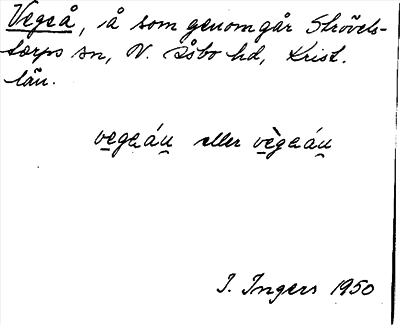 Vegeå, å som genomgår Strövels-
torps sn, N. Åsbo hd, Krist.
län.
vegeán eller vègeán
I. Ingers 1950